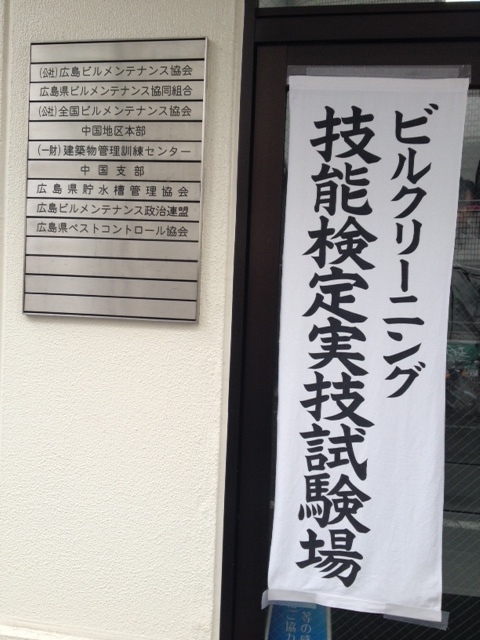 (公社)広島ビルメンテナンス協会
広島県ビルメンテナンス協同組合
(公社)全国ビルメンテナンス協会
中国地区本部
(一財)建築物管理訓練センター
中国支部
広島県貯水槽管理協会
広島ビルメンテナンス政治連盟
広島県ペストコントロール協会
ビルクリーニング
技能検定実技試験場